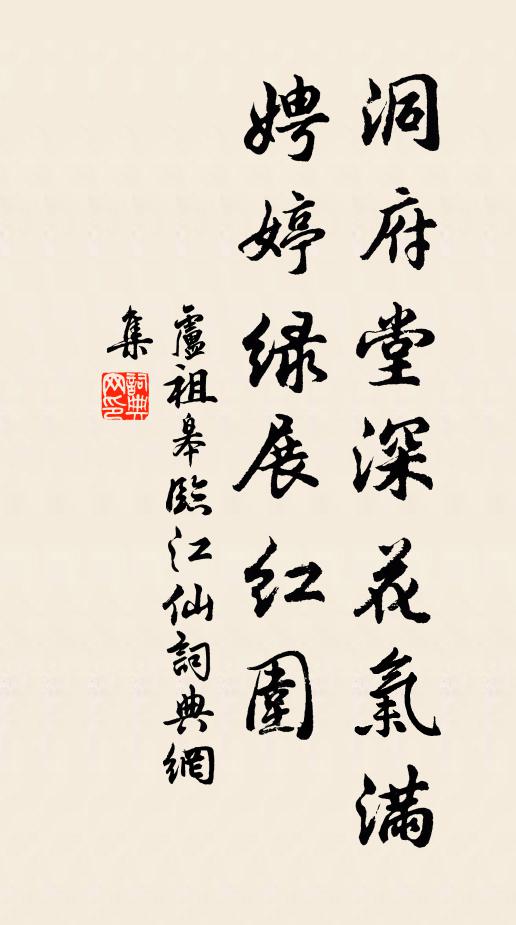 洞府堂深花氣滿
娉婷緑展紅圍
盧祖皋臨江仙詞典網
集
詞典
网印